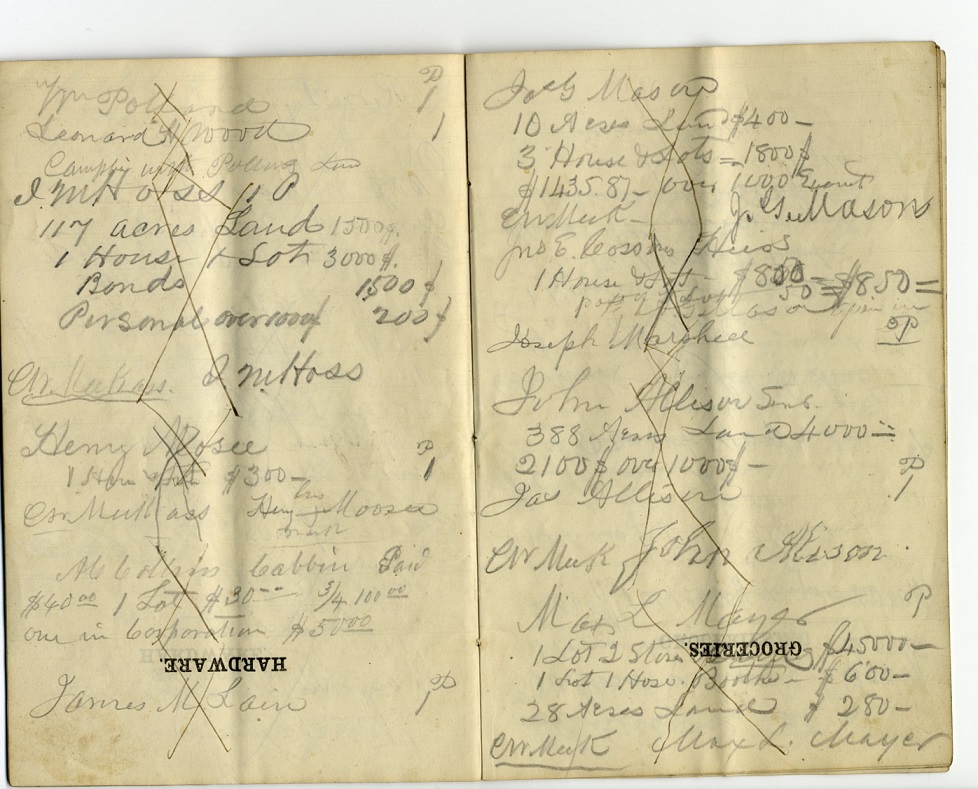 Wm Polland P 1
Leonard H Wood 1
I M Hoss 11 P
117 acres Land 1500$.
1 House + Lot 3000$.
Bonds 1500$
Personal over 1000$ 200$
CW Meek ass. I M Hoss
Henry Mosee P
1 Hous Lot $300– 1
CW Meek ass Henry his Mooser
mark
Mc Collins Cabbin Paid
$40 00 1 Lot $30-- 3/4 100 00
one in Corporation $50 00
HARDWARE.
James M Lain P 1
Jos G Mason
10 Acres Land $400–
3 House & Lots = 1800$
$1435.87– over 1000
CW Meek– J. G. Mason
Jno E. Heirs
1 House & Lot – $800 = $850=
50
Joseph Marshall P
John Allison Sen.
388 Acres Land 4000=
2100$ over 1000$– P
Jas Allison 1
CW Meek John Allison.
Max L Mayer P
1 Lot 2 Store $45000–
GROCERIES.
1 Lot 1 Hose. Booths– $600–
28 Acres Land $280–
CW Meek Max L. Mayer